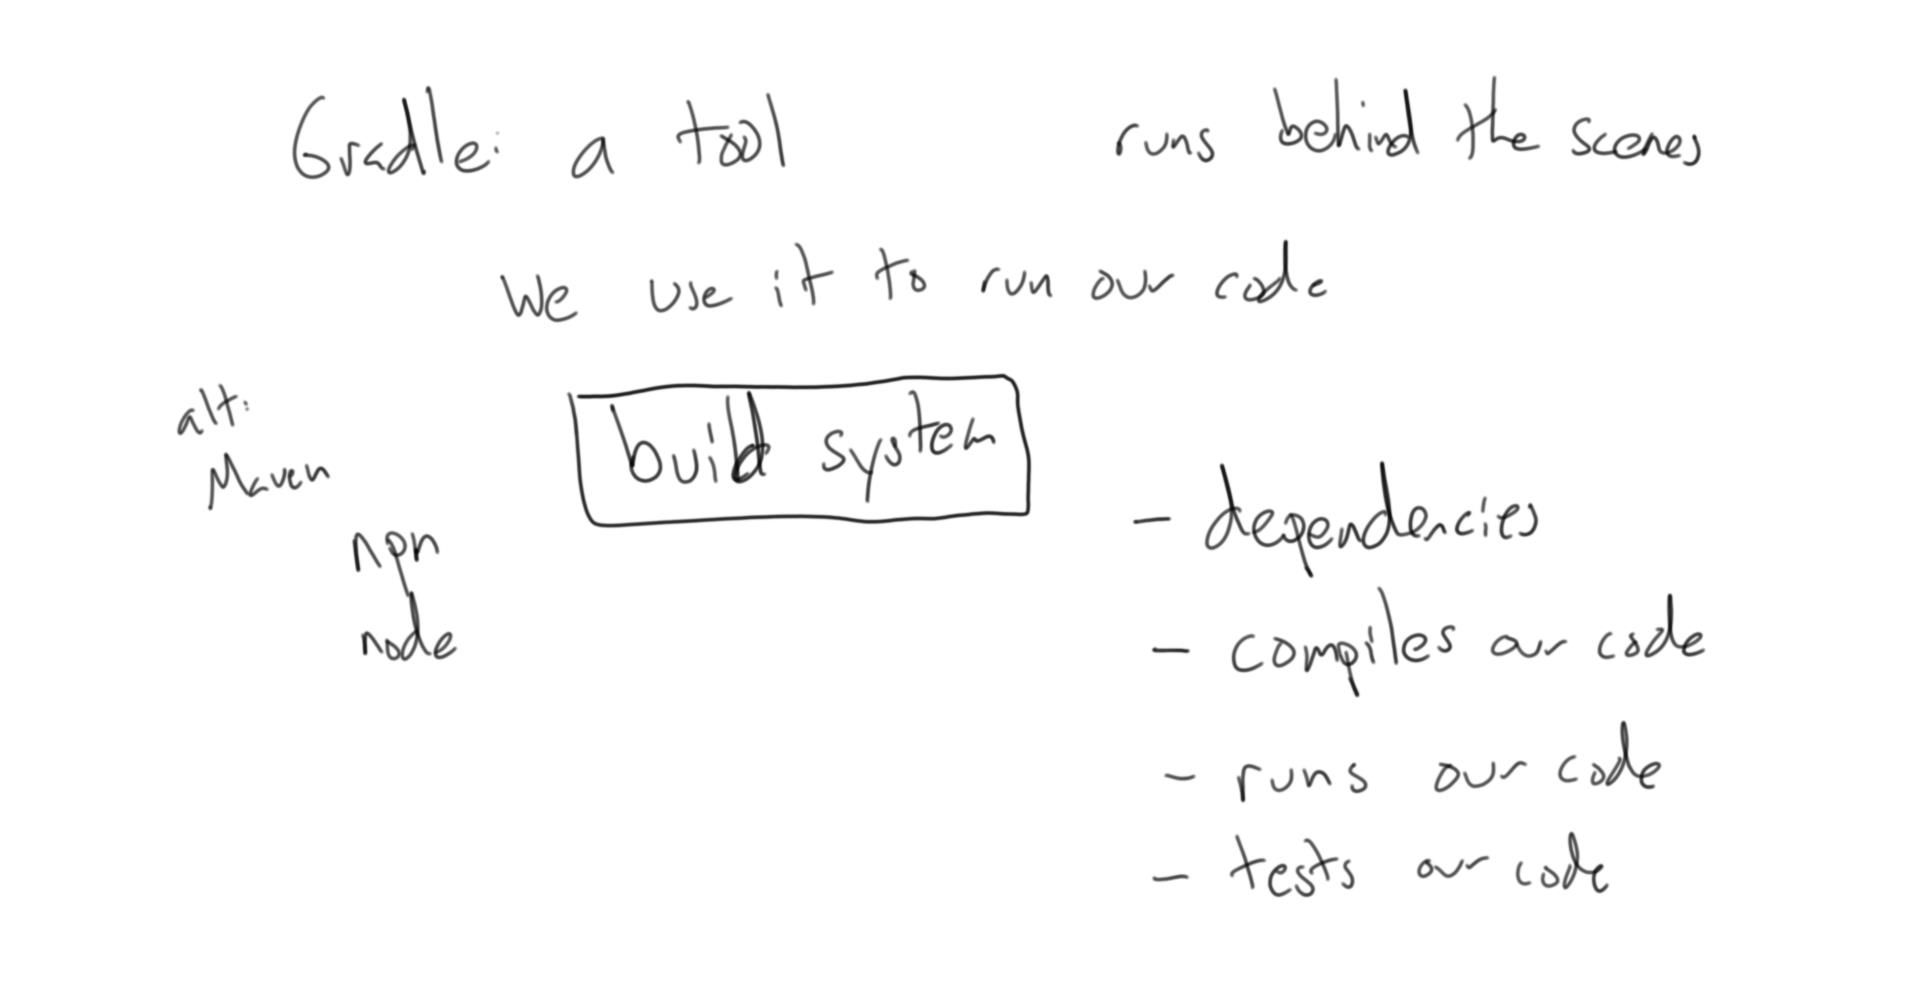 Gradle: a tool
runs behind the scenes
We use it to run our code
alt:
Maven
npm
node
build system
- dependencies
- compiles our code
- runs our code
- tests our code